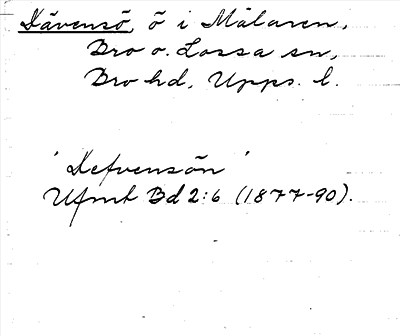 Dävensö, ö i Mälaren,
Bro o. Lossa sn,
Bro hd, Upps. l.
'Defvensön'
Ufmt Bd 2:6 (1877-90).